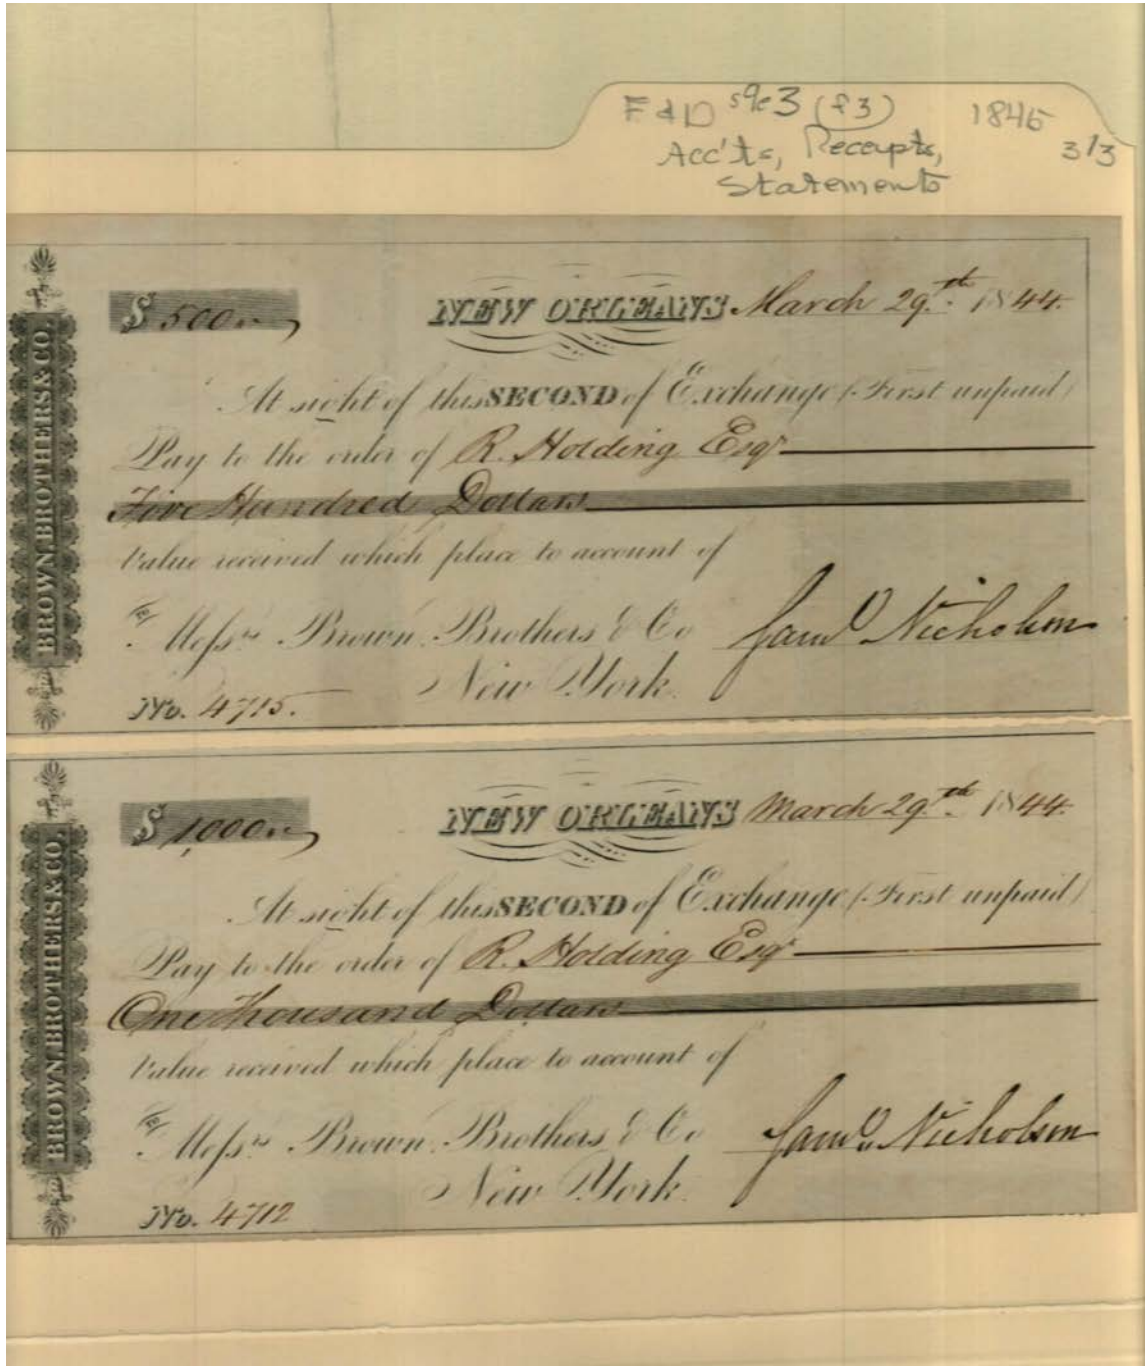 F & D s9c3 (f3) 1845
Acc'ts, Receipts, 3/3
Statements
BROWN, BROTHERS & CO.
$ 500..
NEW ORLEANS March 29.th 1844.
At sight of this SECOND of Exchange (First unpaid)
Pay to the order of R. Holding Esqr
Five Hundred Dollars
Value received which place to account of
To Messrs. Brown. Brothers & Co
New York.
Saml Nicholson
No. 4715.
BROWN, BROTHERS & CO.
$ 1,000..
NEW ORLEANS March 29.th 1844.
At sight of this SECOND of Exchange (First unpaid)
Pay to the order of R. Holding Esqr
One Thousand Dollars
Value received which place to account of
To Messrs. Brown. Brothers & Co
New York.
Saml Nicholson
No. 4712